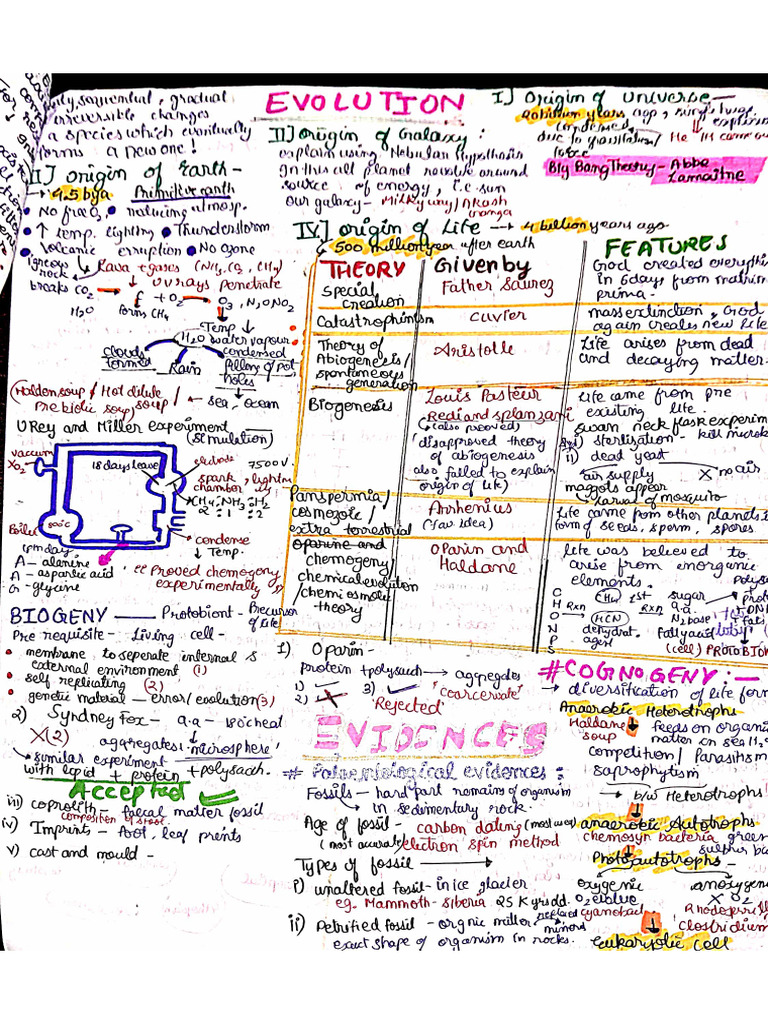 EVOLUTION
, sequential, gradual
irreversible changes
a species which eventually
forms a new one!
I] Origin of Universe—
20 billion years ago, singl
condensed
due to gravitation/
He IH came ou
Big Bang Theory - Abbe
Lamaitne
II] Origin of Galaxy :
explain using Nebular Hypothesis
In this all planet revolve around
source of energy, i.e sun
Our galaxy- Milkyway/Akash
Ganga
II] Origin of Earth-
4.5 bya Primitive earth
No free O2 reducing atmosp.
↑ temp. lighting Thunderstorm
Volcanic erruption No ozone
igneous rock
Lava + gases (NH3, CO2, CH4)
breaks CO2 → UV rays penetrate
C + O2 → O3, N2O NO2
H2O forms CH4
Temp ↓
H2O water vapour
clouds formed Rain condensed
filling of pot holes
(Haldens soup / Hot dilute soup / Prebiotic soup)
sea, ocean
URey and Miller experiment
(Simulation)
vaccum
XO2
18 days leave
7500 V.
spark, lightn
chamber
CH4 : NH3 : H2
2 : 1 : 2
Boiler
condense
↓ Temp.
A- alanine
A- aspartic acid
G- glycine
"Proved chemogeny experimentally"
IV] Origin of Life → 4 billion years ago
500 million year after earth
THEORY Given by FEATURES
Special creation
Father Saurez
God created everythin
in 6 days from
prima.
Catastrophism
Cuvier
mass extinction, God
again creates new life
Theory of Abiogenesis/ spontaneoys generation
Aristolle
Life arises from dead
and decaying matter.
Biogenesis
Louis Pasteur
Redi and splanzani
(also prooved)
(disapproved theory
of abiogenesis
also failed to explain
origin of life)
Life came from pre
existing life.
swan neck flask experim
i) Sterlization - kill microb
ii) dead yeast
air supply X no air
maggots appear
Larva of mosquito
Panspermia/ cosmozoic/ extra terrestrial
Arrhenius
(fav idea)
Life came from other planets i
form of seeds, sperm, spores
oparine and
chemogeny/
chemical evolution
/chemi osmotic
theory
Oparin and
Haldane
Life was believed to
arise from enorganic
elements.
C H O N P S
Rxn
CH4 1st
HCN
dehydrat. agen
Rxn
sugar
a.a.
N2 base
Fatty acid
(cell) PROTOBION
BIOGENY — Protobiont - Precursor of life
Pre requisite - Living cell-
membrane to seperate internal &
external environment (1)
self replicating (2)
genetic material — error/evolution (3)
2) Syndney Fox - a.a - 180c heat
X(2)
aggregates - 'microsphere'
similar experiment
with lipid + protein + polysacch.
Accepted
1) Oparin-
protein + polysacch → aggregates
1)
2)
3)
'coarcervate'
'Rejected'
#COGNOGENY :—
→ diversification of life form
Anaerobic Heterotrophs-
Haldane soup
feeds on organi
matter on
competition/ Parasitism
saprophytism
b/w Heterotrophs
anaerobic Autotrophs
chemosyn bacteria green
sulphur ba
Photoautotrophs -
oxygenic anoxygen
O2 evolve X O2
cyanobact
clostridium
Eukaryotic cell
EVIDENCES
# Paleontological evidences :
Fossils - hard part remains of organism
in sedimentary rock.
Age of fossil - carbon dating (most used)
(most accurate) electron spin method
Types of fossil →
i) unaltered fossil - in ice glacier
eg. Mammoth - Siberia 25 K yrs old.
ii) Petrified fossil - orgnic matter replaced minerd
exact shape of organism in rocks.
iii) coprolith - faecal matter fossil
composition of
iv) Imprints - foot, leaf prints
v) cast and mould -